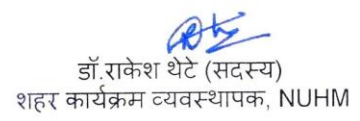 डॉ.राकेश थेटे (सदस्य)
शहर कार्यक्रम व्यवस्थापक, NUHM